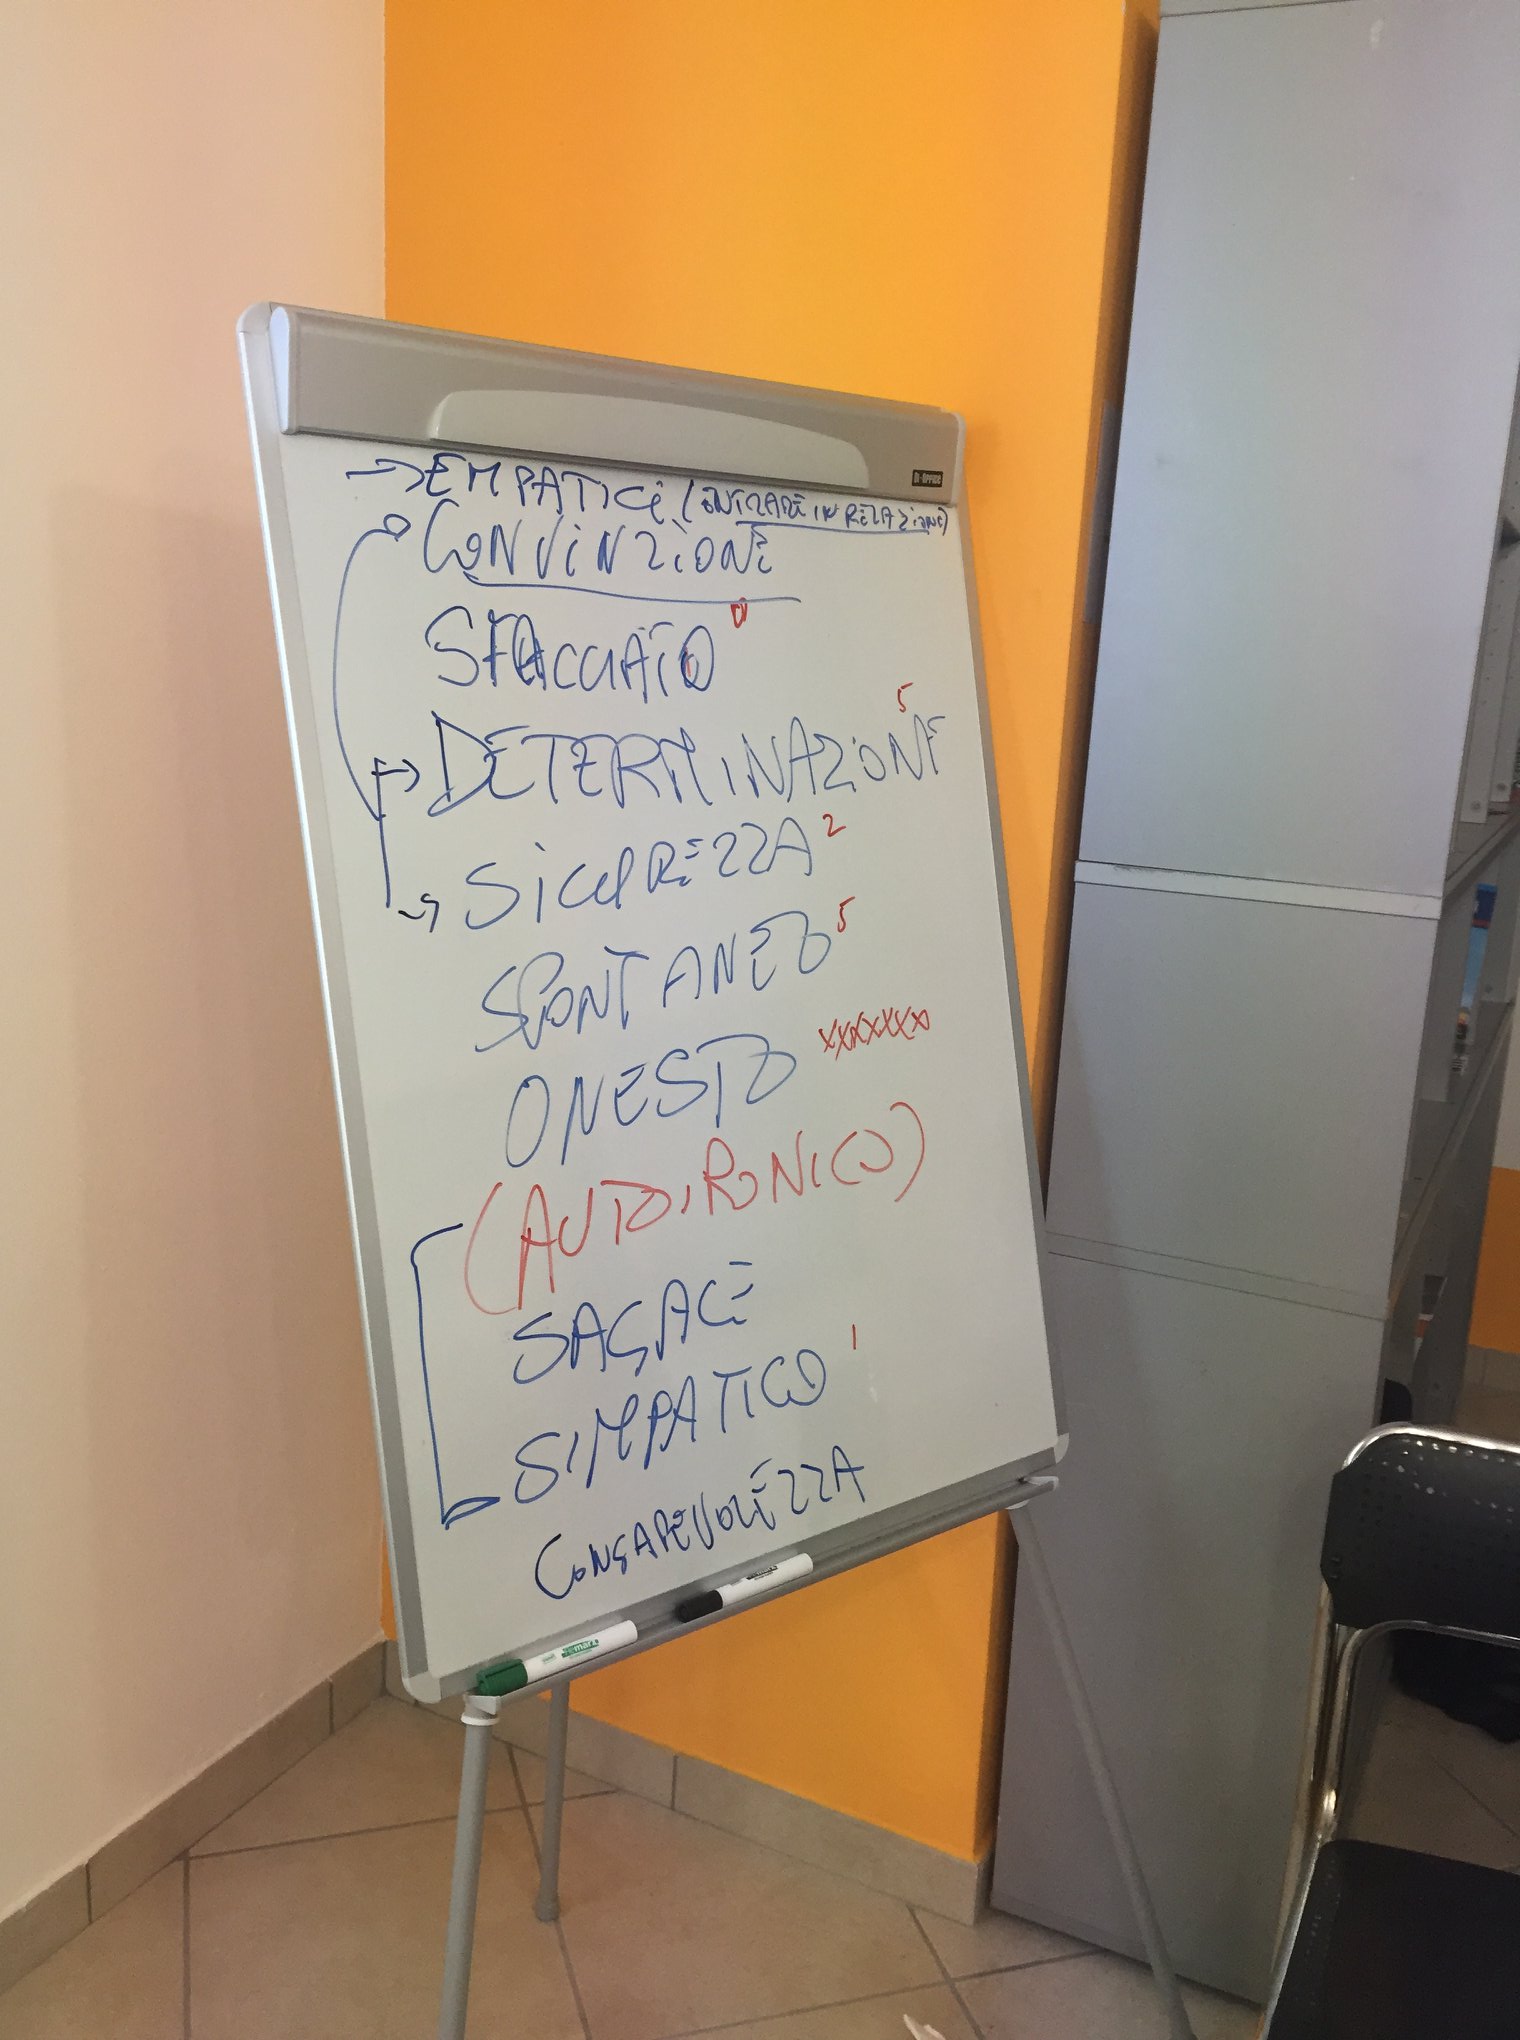 → EMPATICI (ENTRARE IN RELAZIONE)
CONVINZIONE
SFACCIATO 0
→ DETERMINAZIONE 5
→ SICUREZZA 2
SPONTANEO 5
ONESTO XXXXXXX
(AUTOIRONICO)
SAGACE
SIMPATICO 1
CONSAPEVOLEZZA